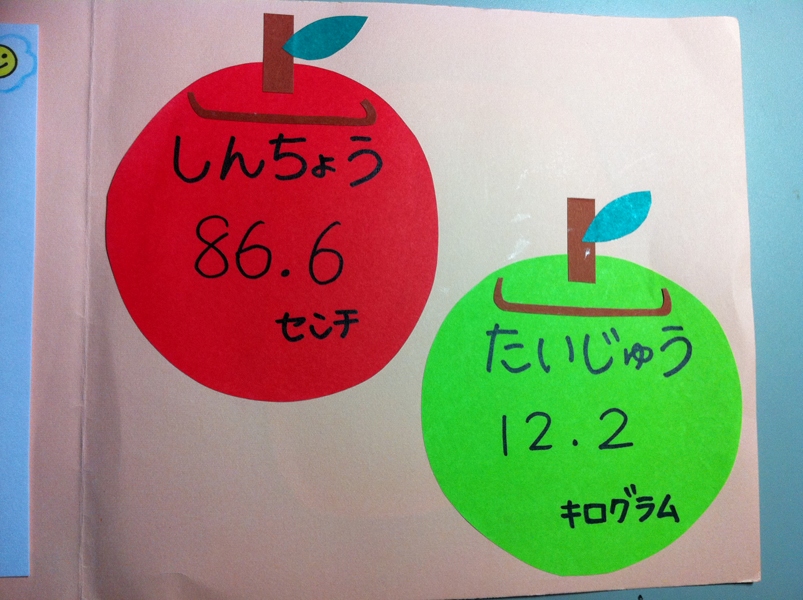 しんちょう
86.6
センチ
たいじゅう
12.2
キログラム